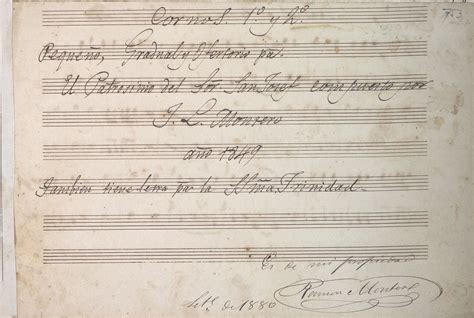 Cornos. 1º y 2º.
Pequeño, Gradual y Ofertorio pª.
El Patrosinio del Sor. San José compuesto por
J. L. Montero
año 1849
Tambien tiene letra pª la SSma. Trinidad.
Es de mi propiedad
Ramon e Montero
de 1880